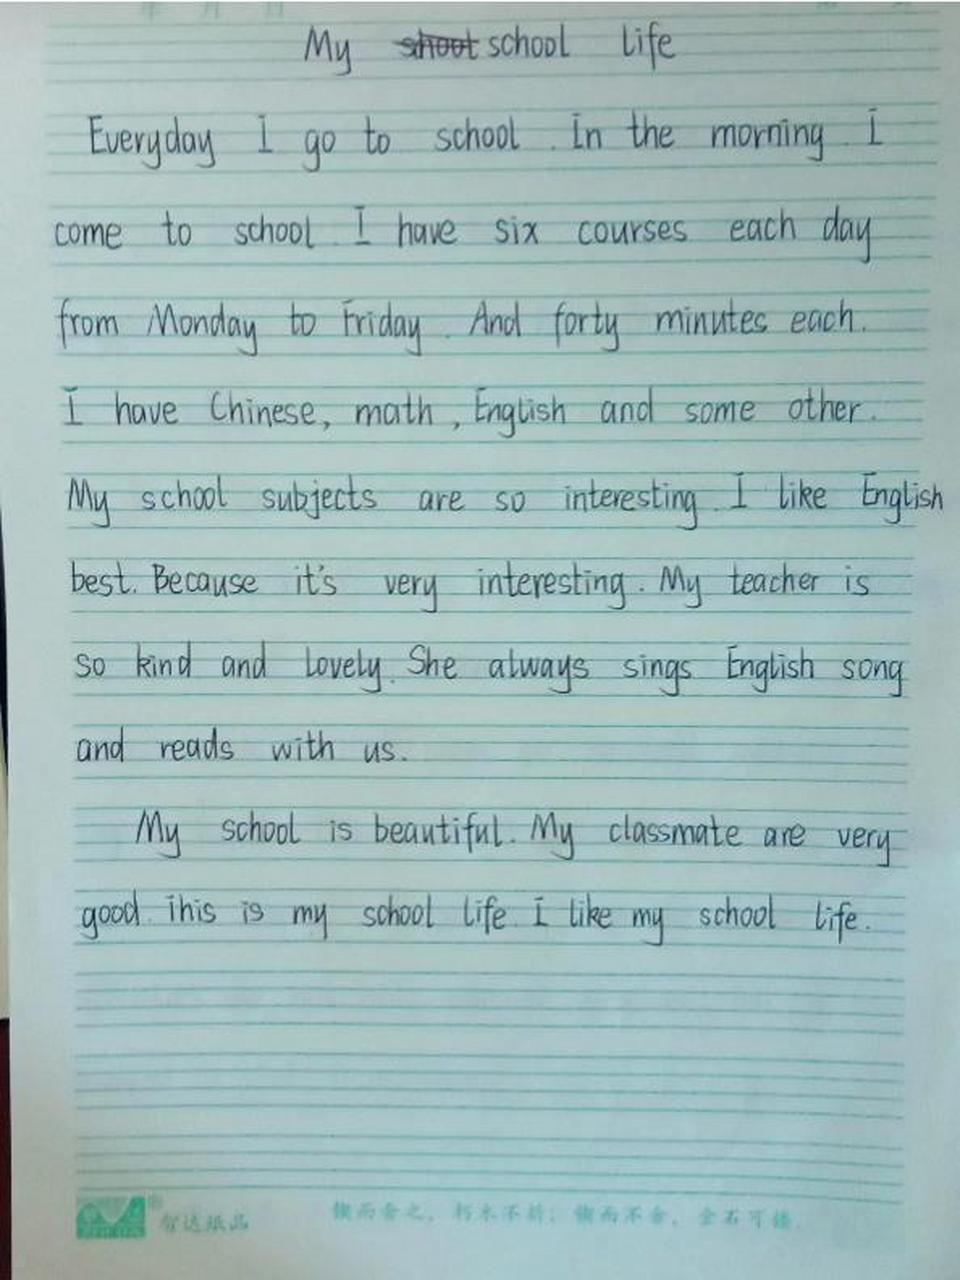 My school life
Everyday I go to school. In the morning I
come to school. I have six courses each day
from Monday to Friday. And forty minutes each.
I have Chinese, math, English and some other.
My school subjects are so interesting. I like English
best. Because it's very interesting. My teacher is
so kind and lovely. She always sings English song
and reads with us.
My school is beautiful. My classmate are very
good. This is my school life. I like my school life.
智达纸品 锲而舍之，朽木不折；锲而不舍，金石可镂。